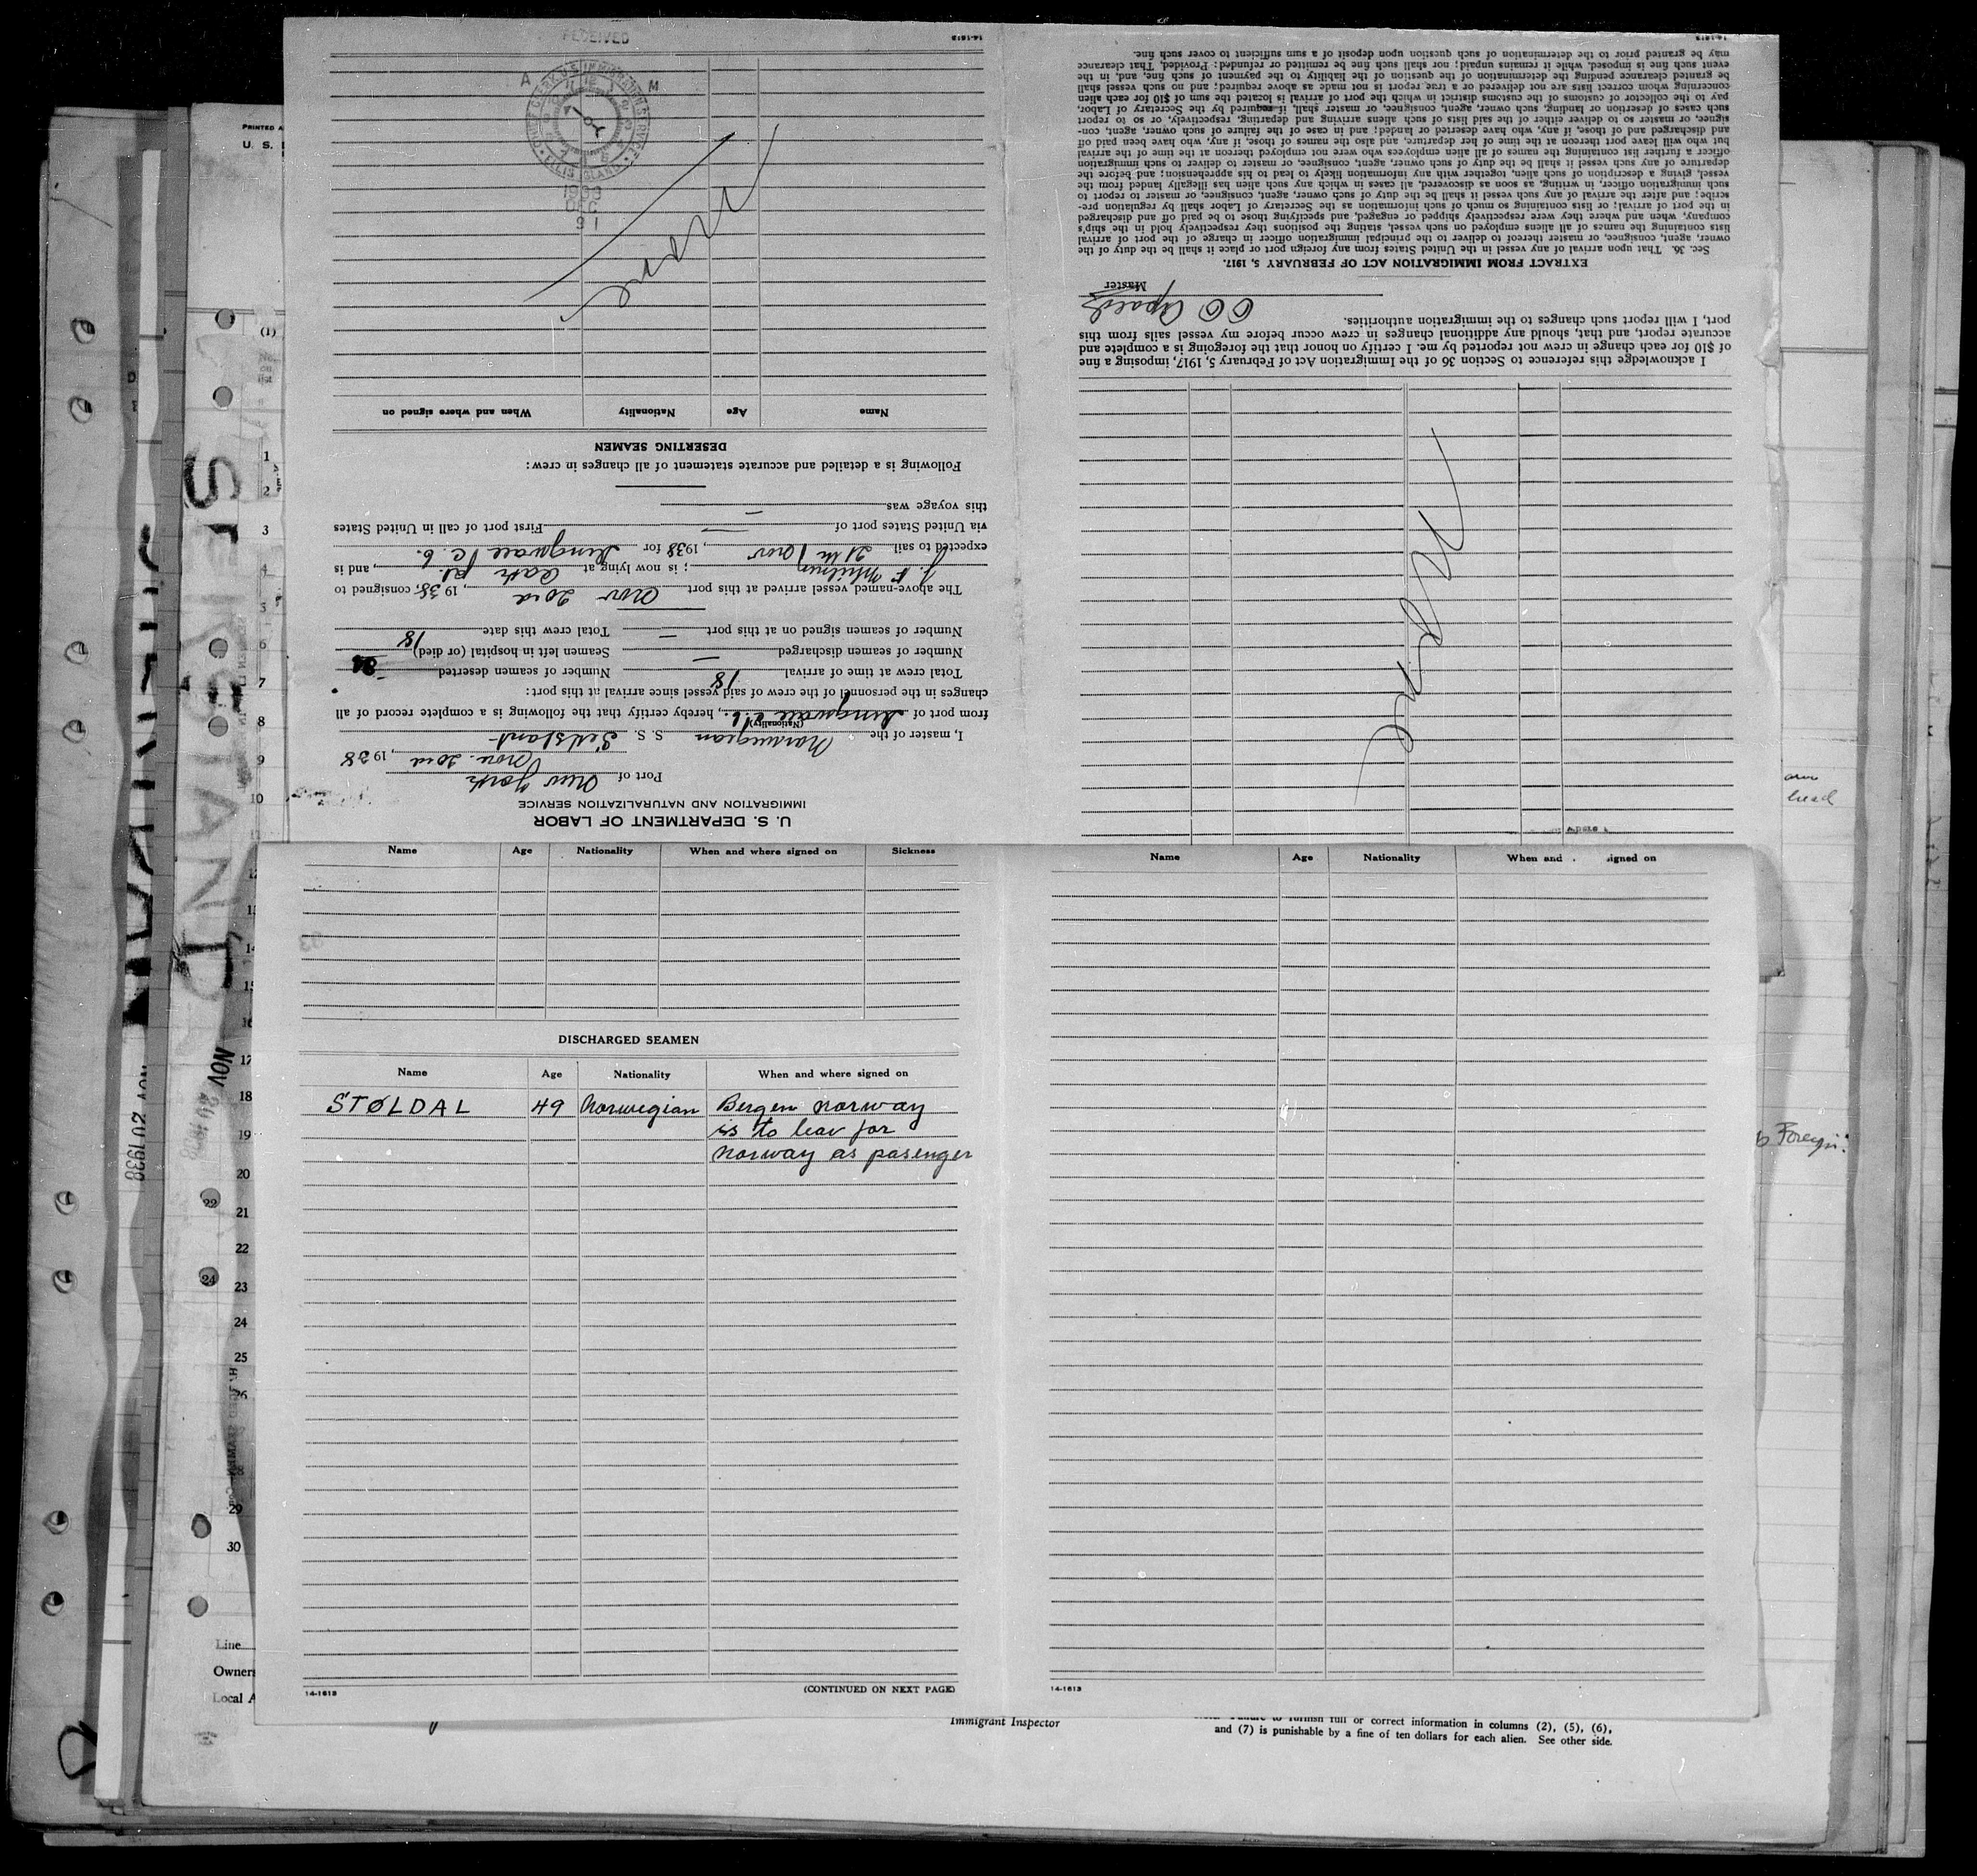 U. S. DEPARTMENT OF LABOR
IMMIGRATION AND NATURALIZATION SERVICE
Port of New York
Nov. 20th, 1938
I, master of the Norwegian S. S.
(Nationality)
from port of, hereby certify that the following is a complete record of all
changes in the personnel of the crew of said vessel since arrival at this port:
Total crew at time of arrival 18 Number of seamen deserted
Number of seamen discharged — Seamen left in hospital (or died)
Number of seamen signed on at this port — Total crew this date 18
The above-named vessel arrived at this port Nov, 1938, consigned to
; is now lying at, and is
expected to sail Nov, 1938 for
via United States port of — First port of call in United States
this voyage was —
Following is a detailed and accurate statement of all changes in crew:
DESERTING SEAMEN
Name Age Nationality When and where signed on
none
RECEIVED
A M
ELLIS ISLAND
DEC
14-1613
I acknowledge this reference to Section 36 of the Immigration Act of February 5, 1917, imposing a fine
of $10 for each change in crew not reported by me. I certify on honor that the foregoing is a complete and
accurate report, and that, should any additional changes in crew occur before my vessel sails from this
port, I will report such changes to the immigration authorities.
Master
EXTRACT FROM IMMIGRATION ACT OF FEBRUARY 5, 1917.
Sec. 36. That upon arrival of any vessel in the United States from any foreign port or place it shall be the duty of the
owner, agent, consignee, or master thereof to deliver to the principal immigration officer in charge of the port of arrival
lists containing the names of all aliens employed on such vessel, stating the positions they respectively hold in the ship's
company, when and where they were respectively shipped or engaged, and specifying those to be paid off and discharged
in the port of arrival; or lists containing so much of such information as the Secretary of Labor shall by regulation pre-
scribe; and after the arrival of any such vessel it shall be the duty of such owner, agent, consignee, or master to report to
such immigration officer, in writing, as soon as discovered, all cases in which any such alien has illegally landed from the
vessel, giving a description of such alien, together with any information likely to lead to his apprehension; and before the
departure of any such vessel it shall be the duty of such owner, agent, consignee, or master to deliver to such immigration
officer a further list containing the names of all alien employees who were not employed thereon at the time of the arrival
but who will leave port thereon at the time of her departure, and also the names of those, if any, who have been paid off
and discharged and of those, if any, who have deserted or landed; and in case of the failure of such owner, agent, con-
signee, or master so to deliver either of the said lists of such aliens arriving and departing, respectively, or so to report
such cases of desertion or landing, such owner, agent, consignee, or master shall, if required by the Secretary of Labor,
pay to the collector of customs of the customs district in which the port of arrival is located the sum of $10 for each alien
concerning whom correct lists are not delivered or a true report is not made as above required; and no such vessel shall
be granted clearance pending the determination of the question of the liability to the payment of such fine, and, in the
event such fine is imposed, while it remains unpaid; nor shall such fine be remitted or refunded: Provided, That clearance
may be granted prior to the determination of such question upon deposit of a sum sufficient to cover such fine.
14-1613
none
Name Age Nationality When and where signed on Sickness
DISCHARGED SEAMEN
Name Age Nationality When and where signed on
STØLDAL 49 Norwegian Bergen norway
is to leav for
norway as pasenger
14-1613 (CONTINUED ON NEXT PAGE)
Name Age Nationality When and signed on
14-1613
PRINTED
U. S.
(1)
1
2
3
4
5
6
7
8
9
10
18
19
20
21
22
23
24
25
29
30
Line
Owners
Local A
NOV 20 1938
Foreign
Immigrant Inspector
full or correct information in columns (2), (5), (6),
and (7) is punishable by a fine of ten dollars for each alien. See other side.